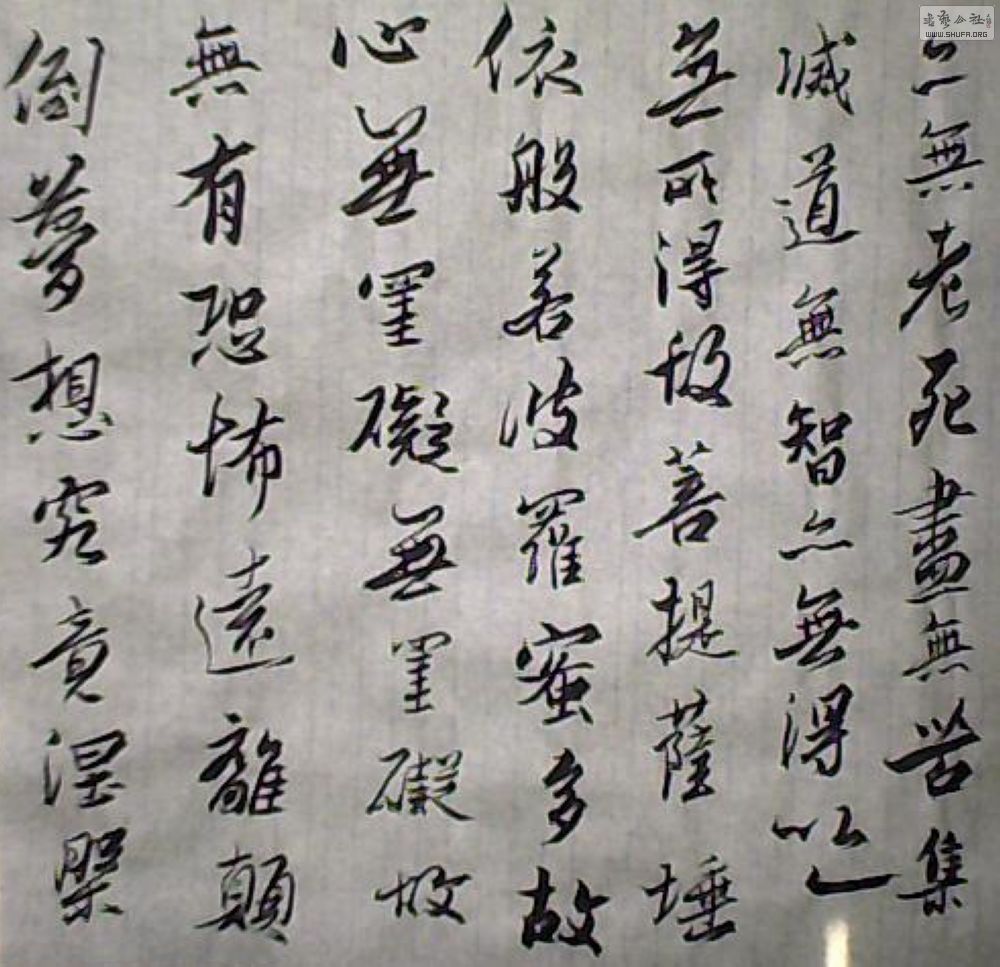 亦無老死盡無苦集
滅道無智亦無得以
無所得故菩提薩埵
依般若波羅蜜多故
心無罣礙無罣礙故
無有恐怖遠離顛
倒夢想究竟涅槃
書藝公社
WWW.SHUFA.ORG